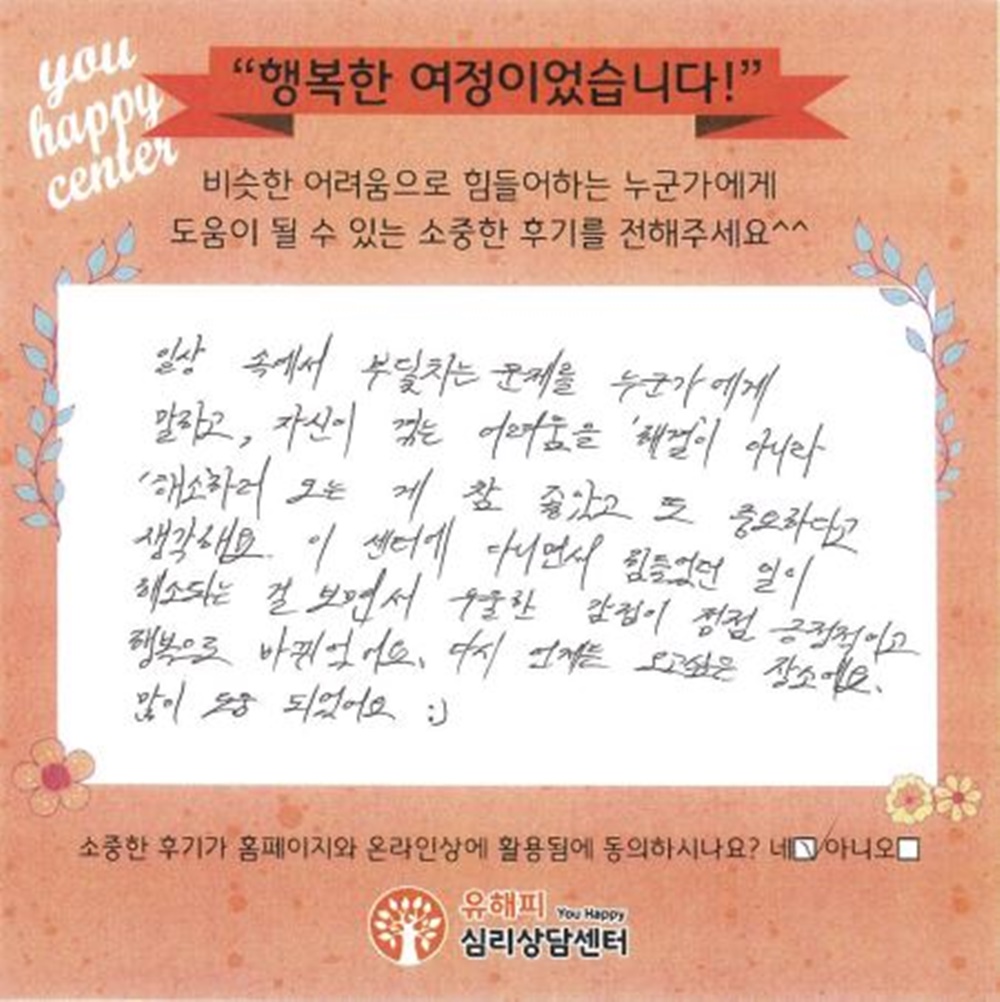 you
happy
center
“행복한 여정이었습니다!”
비슷한 어려움으로 힘들어하는 누군가에게
도움이 될 수 있는 소중한 후기를 전해주세요^^
일상 속에서 부딪치는 문제를 누군가에게
말하고, 자신이 겪는 어려움을 '해결'이 아니라
'해소'하러 오는 게 참 좋았고 또 중요하다고
생각해요. 이 센터에 다니면서 힘들었던 일이
해소되는 걸 보면서 우울한 감정이 점점 긍정적이고
행복으로 바뀌었어요. 다시 언제든 오고싶은 장소예요.
많이 도움 되었어요 :)
소중한 후기가 홈페이지와 온라인상에 활용됨에 동의하시나요? 네☑/아니오☐
유해피 You Happy
심리상담센터